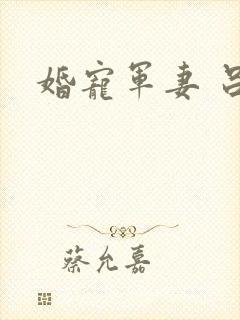 婚寵軍妻
蔡允嘉